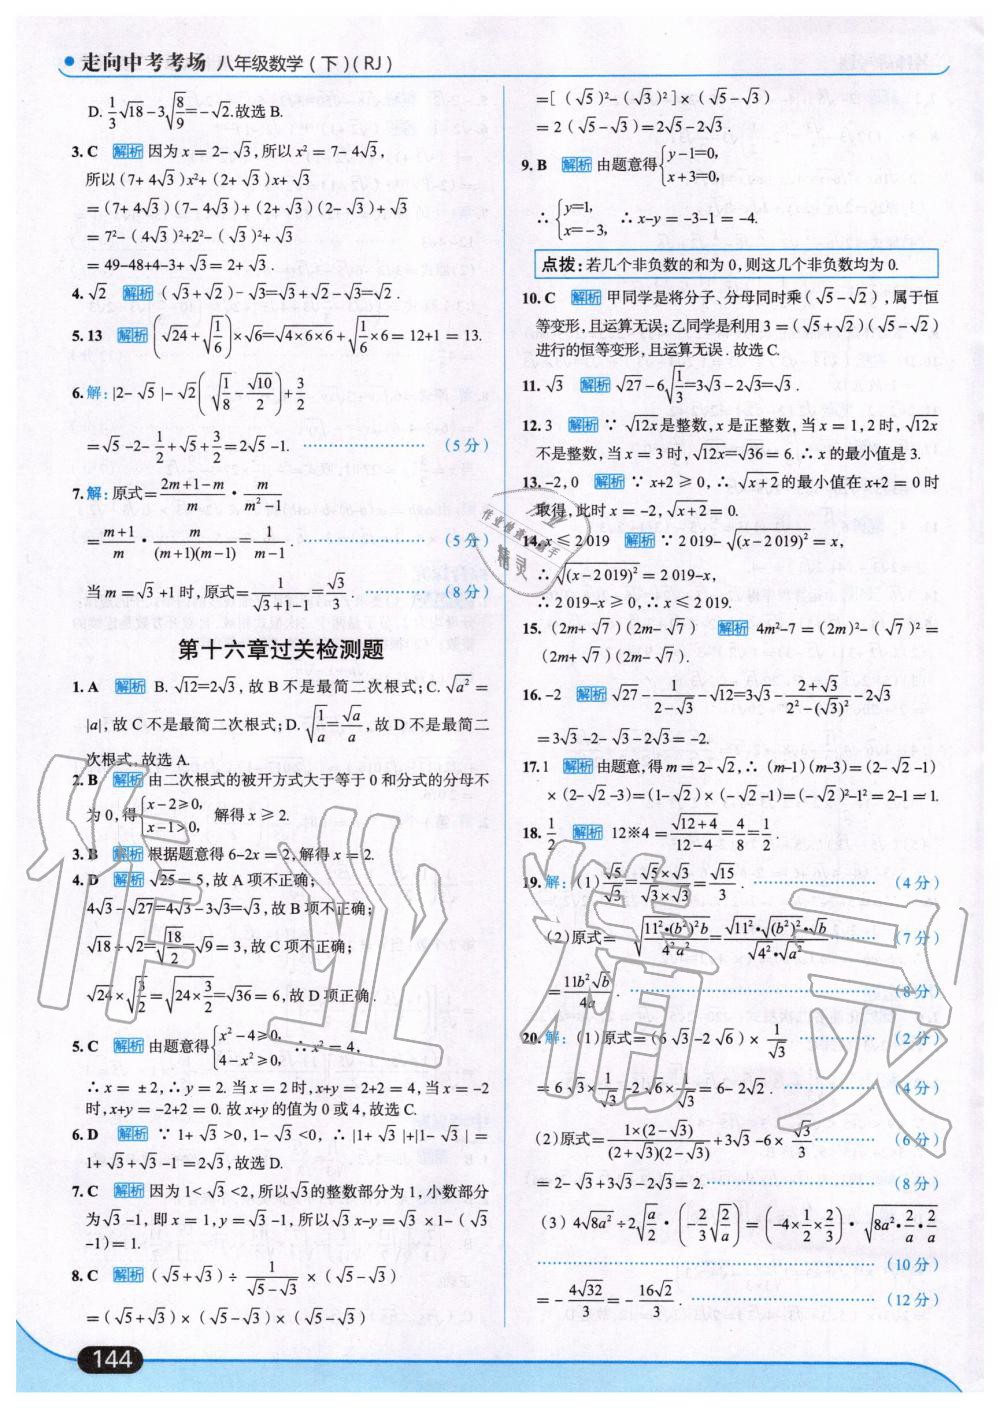 走向中考考场 八年级数学(下)(RJ)
D. 1/3√18-3√(8/9)=-√2.故选B.
3. C 解析 因为x=2-√3,所以x²=7-4√3,
所以(7+4√3)x²+(2+√3)x+√3
=(7+4√3)(7-4√3)+(2+√3)(2-√3)+√3
=7²-(4√3)²+2²-(√3)²+√3
=49-48+4-3+√3=2+√3.
4. √2 解析 (√3+√2)-√3=√3+√2-√3=√2.
5. 13 解析 (√24+√(1/6))×√6=√(4×6×6)+√(1/6×6)=12+1=13.
6. 解:|2-√5|-√2(√(1/8)-√10/2)+3/2
=√5-2-1/2+√5+3/2=2√5-1. ……………… (5分)
7. 解:原式=(2m+1-m)/m·m/(m²-1)
=(m+1)/m·m/((m+1)(m-1))=1/(m-1). ……………… (5分)
当m=√3+1时,原式=1/(√3+1-1)=√3/3. ………… (8分)
第十六章过关检测题
1. A 解析 B. √12=2√3,故B不是最简二次根式;C. √a²=
|a|,故C不是最简二次根式;D. √(1/a)=√a/a,故D不是最简二
次根式.故选A.
2. B 解析 由二次根式的被开方式大于等于0和分式的分母不
为0,得{x-2≥0, x-1>0, 解得x≥2.
3. B 解析 根据题意得6-2x=2,解得x=2.
4. D 解析 √25=5,故A项不正确;
4√3-√27=4√3-3√3=√3,故B项不正确;
√18÷√2=√(18/2)=√9=3,故C项不正确;
√24×√(3/2)=√(24×3/2)=√36=6,故D项正确.
5. C 解析 由题意得{x²-4≥0, 4-x²≥0, ∴x²=4,
∴x=±2,∴y=2.当x=2时,x+y=2+2=4,当x=-2
时,x+y=-2+2=0.故x+y的值为0或4,故选C.
6. D 解析 ∵1+√3>0,1-√3<0,∴|1+√3|+|1-√3|=
1+√3+√3-1=2√3,故选D.
7. C 解析 因为1<√3<2,所以√3的整数部分为1,小数部分
为√3-1,即x=1,y=√3-1,所以√3x-y=√3×1-(√3
-1)=1.
8. C 解析 (√5+√3)÷1/(√5-√3)×(√5-√3)
=(√5+√3)×(√5-√3)×(√5-√3)
=[(√5)²-(√3)²]×(√5-√3)
=2(√5-√3)=2√5-2√3.
9. B 解析 由题意得{y-1=0, x+3=0,
∴{y=1, x=-3, ∴x-y=-3-1=-4.
点拨:若几个非负数的和为0,则这几个非负数均为0.
10. C 解析 甲同学是将分子、分母同时乘(√5-√2),属于恒
等变形,且运算无误;乙同学是利用3=(√5+√2)(√5-√2)
进行的恒等变形,且运算无误.故选C.
11. √3 解析 √27-6√(1/3)=3√3-2√3=√3.
12. 3 解析 ∵√12x是整数,x是正整数,当x=1,2时,√12x
不是整数,当x=3时,√12x=√36=6.∴x的最小值是3.
13. -2,0 解析 ∵x+2≥0,∴√(x+2)的最小值在x+2=0时
取得,此时x=-2,√(x+2)=0.
14. x≤2 019 解析 ∵2 019-√(x-2 019)²=x,
∴√(x-2 019)²=2 019-x,
∴2 019-x≥0,∴x≤2 019.
15. (2m+√7)(2m-√7) 解析 4m²-7=(2m)²-(√7)²=
(2m+√7)(2m-√7).
16. -2 解析 √27-1/(2-√3)-√12=3√3-(2+√3)/(2²-(√3)²)-2√3
=3√3-2-√3-2√3=-2.
17. 1 解析 由题意,得m=2-√2,∴(m-1)(m-3)=(2-√2-1)
×(2-√2-3)=(1-√2)×(-√2-1)=(-√2)²-1²=2-1=1.
18. 1/2 解析 12※4=√(12+4)/(12-4)=4/8=1/2.
19. 解:(1)√5/√3=(√5×√3)/(√3×√3)=√15/3. ……………… (4分)
(2)原式=√(11²·(b²)²b/(4²a²))=√11²·√(b²)²·√b/(√4²·√a²) ……… (7分)
=11b²√b/4a. ……………… (8分)
20. 解:(1)原式=(6√3-2√6)×1/√3 ………… (2分)
=6√3×1/√3-2√6×1/√3=6-2√2. ………… (4分)
(2)原式=1×(2-√3)/((2+√3)(2-√3))+3√3-6×√3/3 ………… (6分)
=2-√3+3√3-2√3=2. ……………… (8分)
(3)4√8a²÷2√(a/2)·(-2/3√(2/a))=(-4×1/2×2/3)·√(8a²·2/a·2/a)
……………… (10分)
=-4√32/3=-16√2/3. ……………… (12分)
作业检查小助手
精灵
作业精灵
144